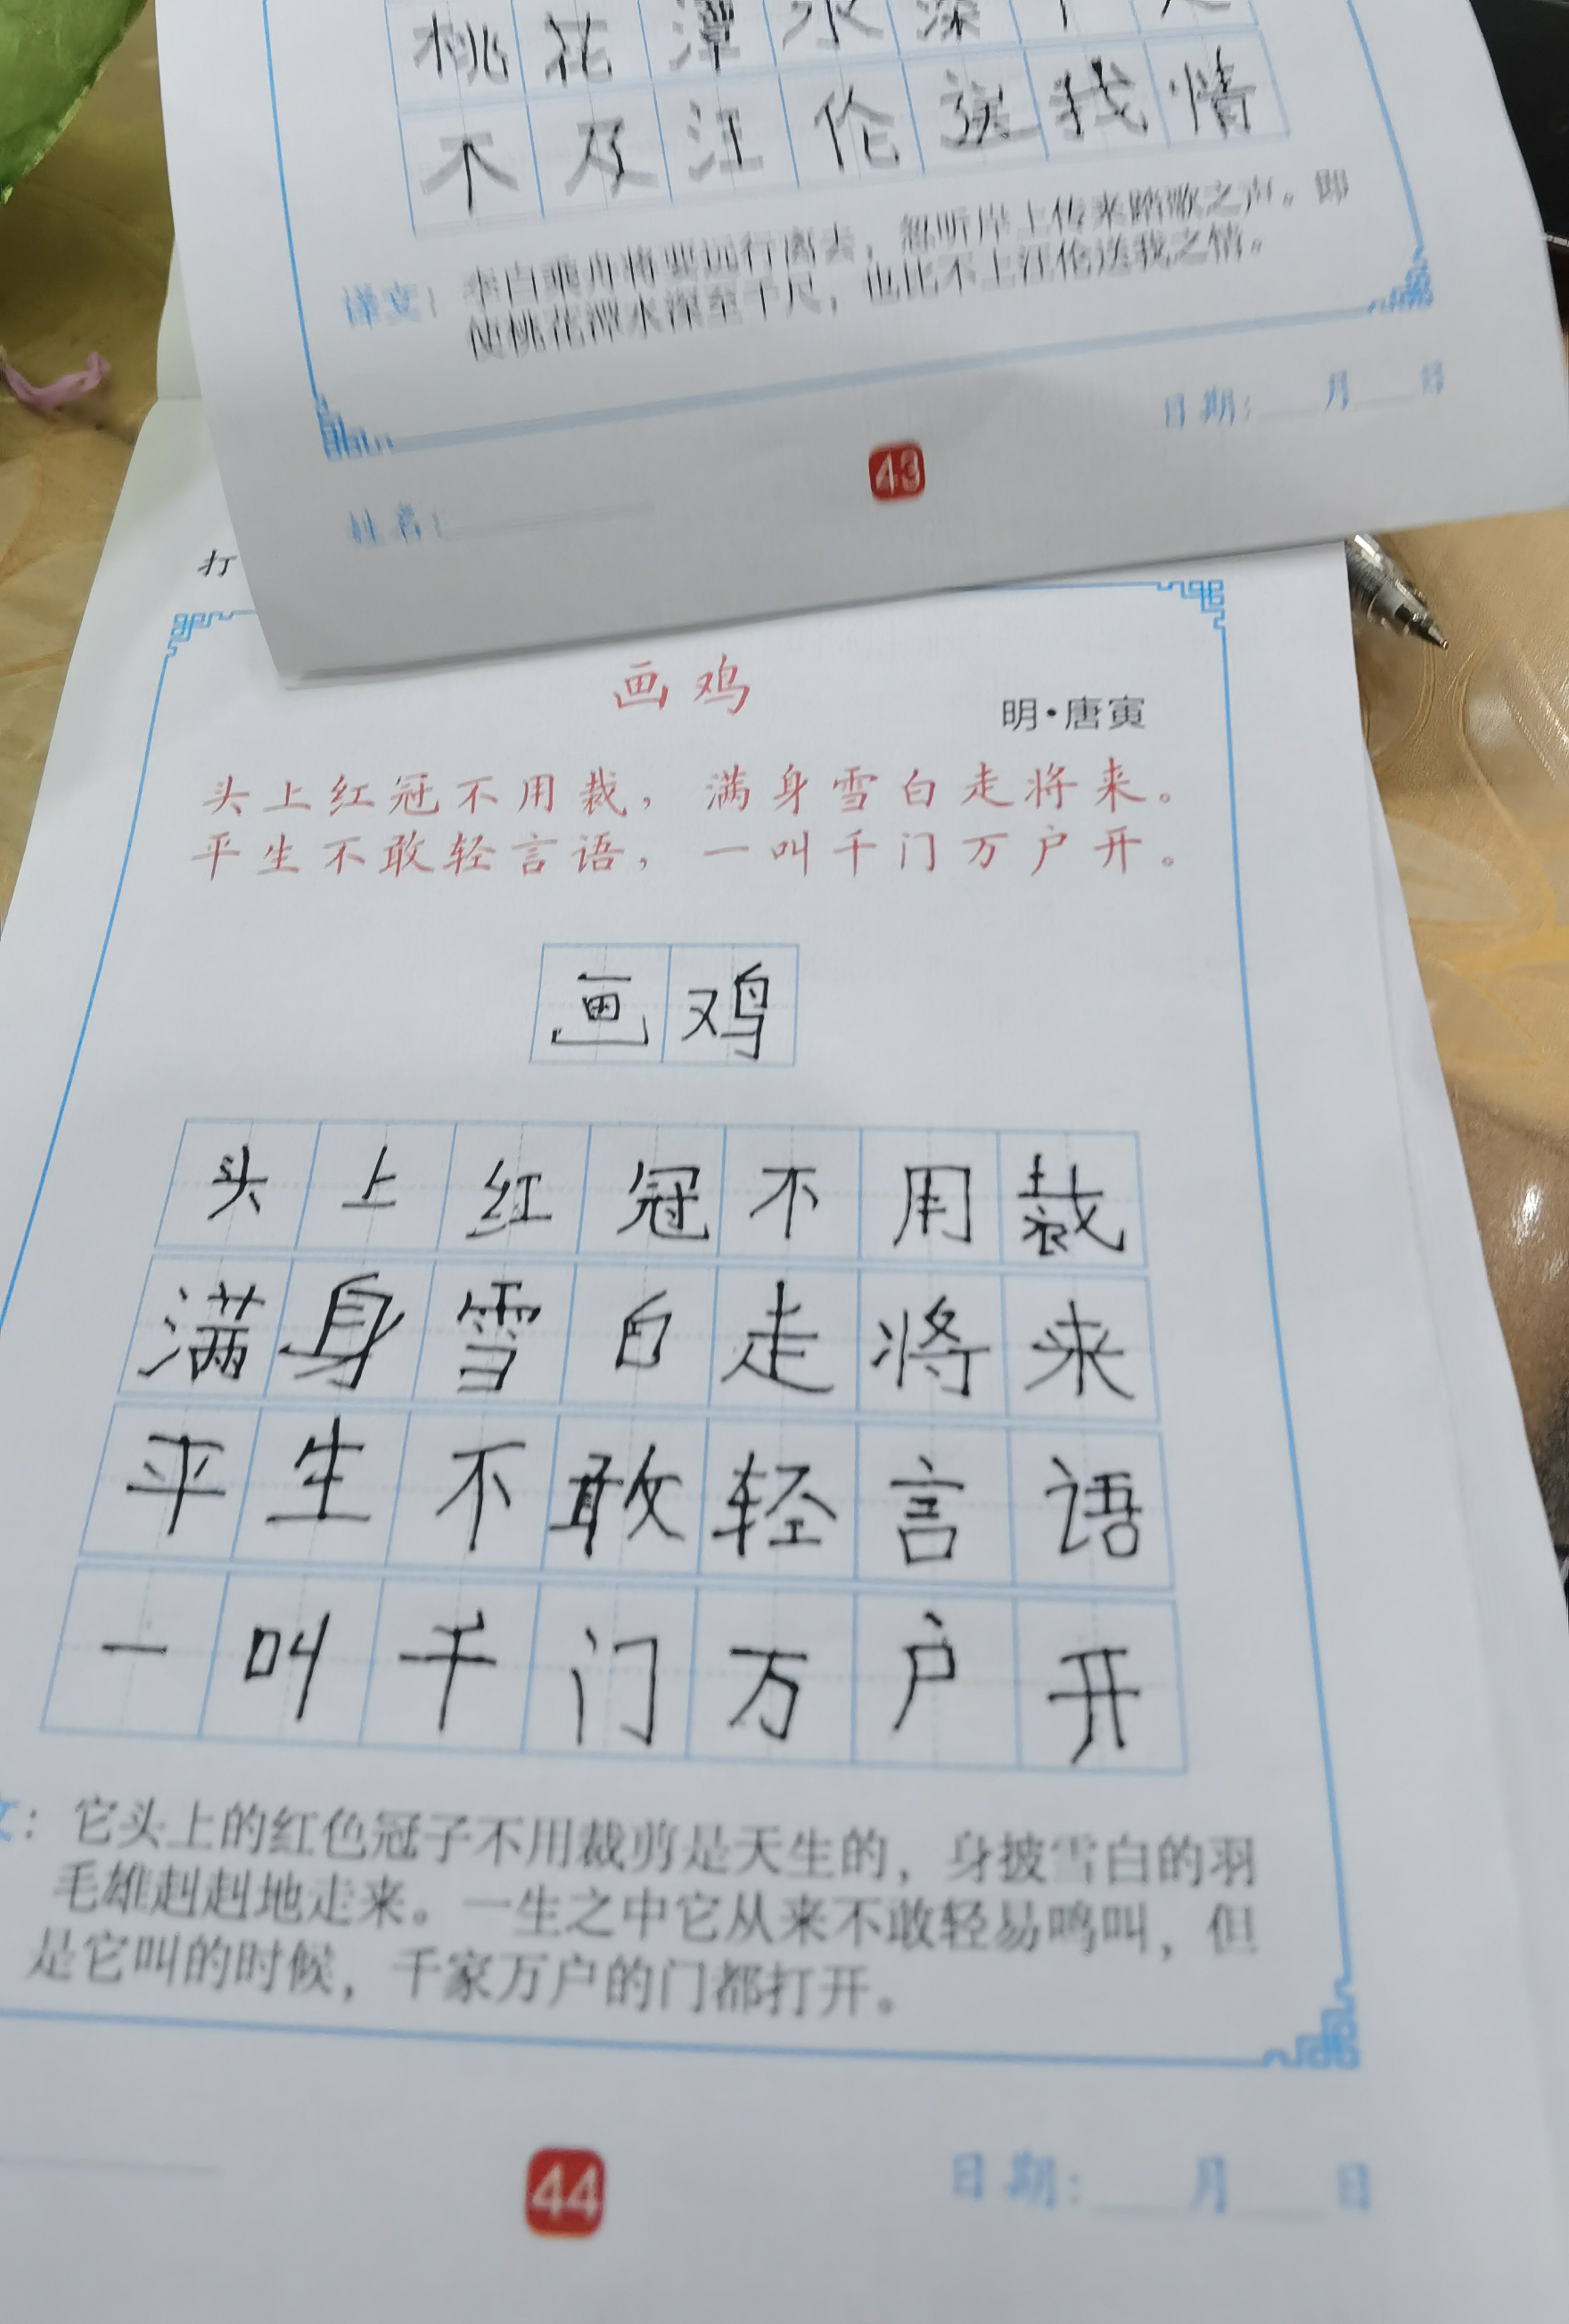 桃花潭水深千尺
不及汪伦送我情
译文：李白乘舟将要远行离去，忽听岸上传来踏歌之声。即
使桃花潭水深至千尺，也比不上汪伦送我之情。
日期：___月___日
43
姓名：
打
画鸡
明·唐寅
头上红冠不用裁，满身雪白走将来。
平生不敢轻言语，一叫千门万户开。
画鸡
头上红冠不用裁
满身雪白走将来
平生不敢轻言语
一叫千门万户开
文：它头上的红色冠子不用裁剪是天生的，身披雪白的羽
毛雄赳赳地走来。一生之中它从来不敢轻易鸣叫，但
是它叫的时候，千家万户的门都打开。
44
日期：___月___日